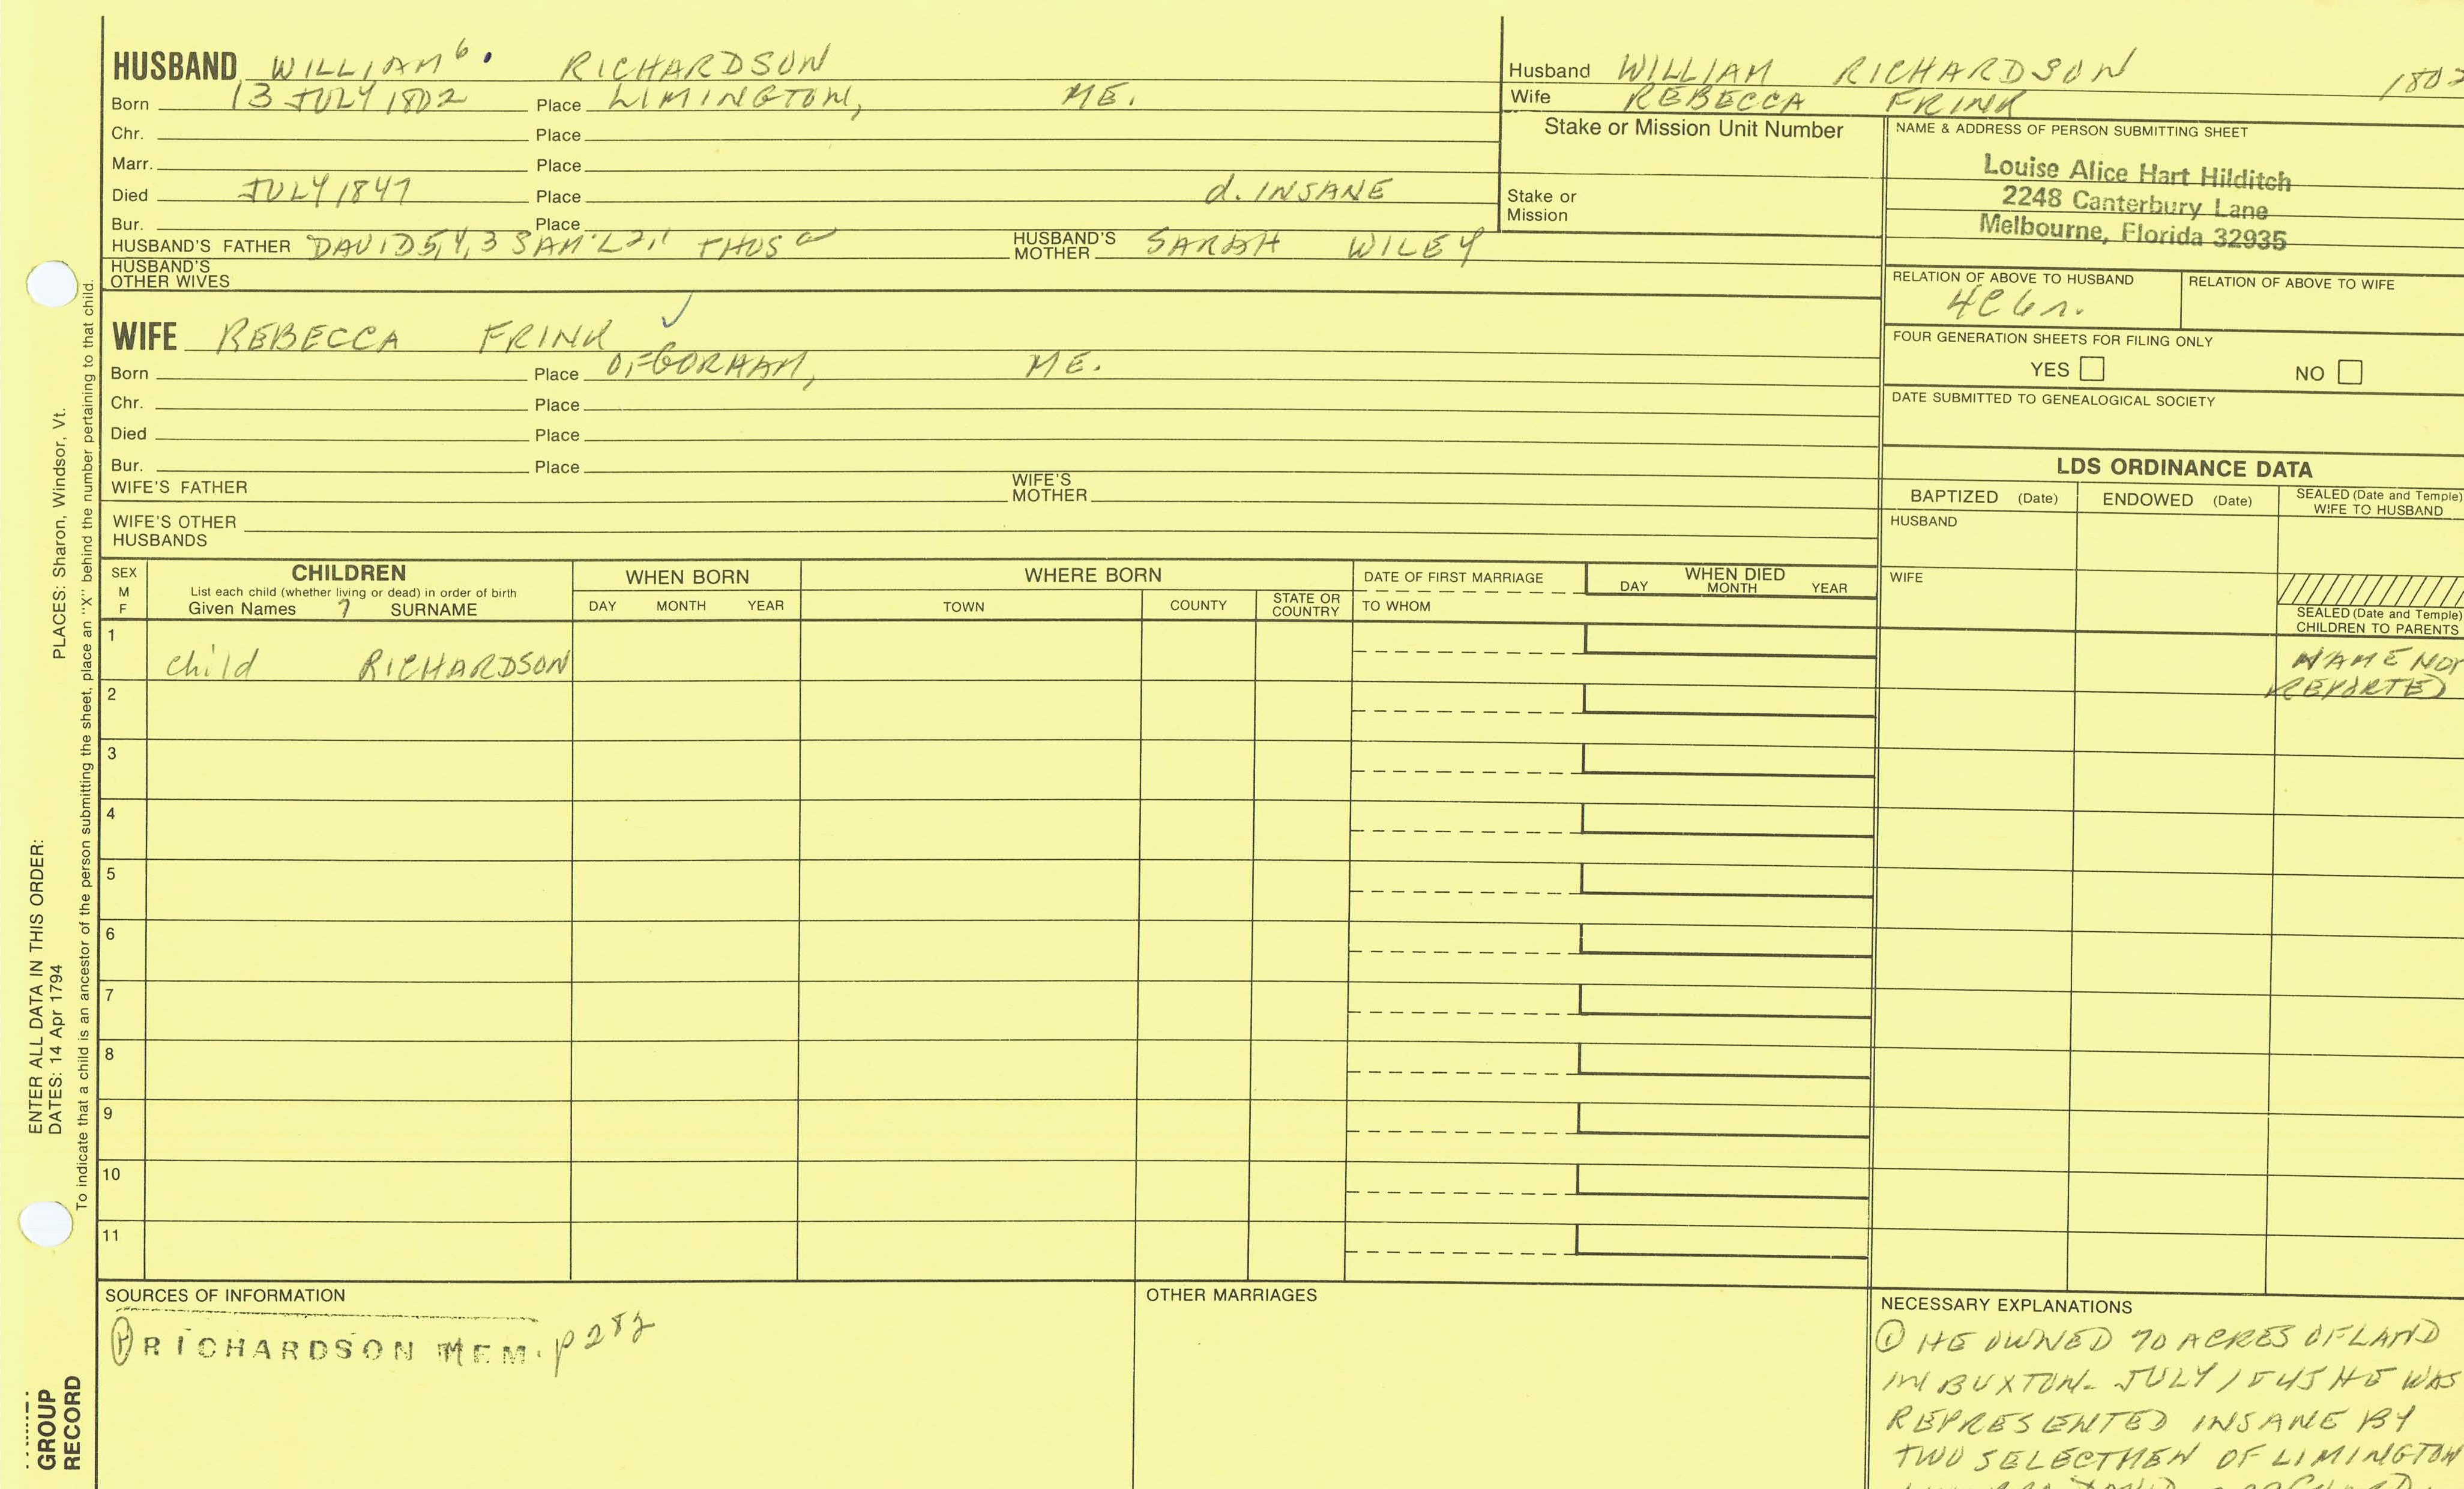 HUSBAND WILLIAM 6. RICHARDSON
Born 13 JULY 1802 Place LIMINGTON, ME.
Chr. Place
Marr. Place
Died JULY 1847 Place d. INSANE
Bur. Place
HUSBAND'S FATHER DAVID 5,4,3 SAM'L 2,1 THOS HUSBAND'S MOTHER SARAH WILEY
HUSBAND'S OTHER WIVES
WIFE REBECCA FRINK
Born Place OF GORHAM, ME.
Chr. Place
Died Place
Bur. Place
WIFE'S FATHER WIFE'S MOTHER
WIFE'S OTHER HUSBANDS
Husband WILLIAM RICHARDSON 1802
Wife REBECCA FRINK
Stake or Mission Unit Number
Stake or Mission
NAME & ADDRESS OF PERSON SUBMITTING SHEET
Louise Alice Hart Hilditch
2248 Canterbury Lane
Melbourne, Florida 32935
RELATION OF ABOVE TO HUSBAND RELATION OF ABOVE TO WIFE
4C6r.
FOUR GENERATION SHEETS FOR FILING ONLY
YES NO
DATE SUBMITTED TO GENEALOGICAL SOCIETY
LDS ORDINANCE DATA
BAPTIZED (Date) ENDOWED (Date) SEALED (Date and Temple) WIFE TO HUSBAND
HUSBAND
WIFE
SEALED (Date and Temple) CHILDREN TO PARENTS
SEX M F
CHILDREN
List each child (whether living or dead) in order of birth
Given Names ? SURNAME
WHEN BORN
DAY MONTH YEAR
WHERE BORN
TOWN COUNTY STATE OR COUNTRY
DATE OF FIRST MARRIAGE
TO WHOM
WHEN DIED
DAY MONTH YEAR
1 child RICHARDSON NAME NOT
REPORTED
2
3
4
5
6
7
8
9
10
11
SOURCES OF INFORMATION
RICHARDSON MEM. p 282
OTHER MARRIAGES
NECESSARY EXPLANATIONS
① HE OWNED 70 ACRES OF LAND
IN BUXTON. JULY 1845 HE WAS
REPRESENTED INSANE BY
TWO SELECTMEN OF LIMINGTON
PLACES: Sharon, Windsor, Vt.
ENTER ALL DATA IN THIS ORDER:
DATES: 14 Apr 1794
To indicate that a child is an ancestor of the person submitting the sheet, place an "X" behind the number pertaining to that child.
GROUP
RECORD